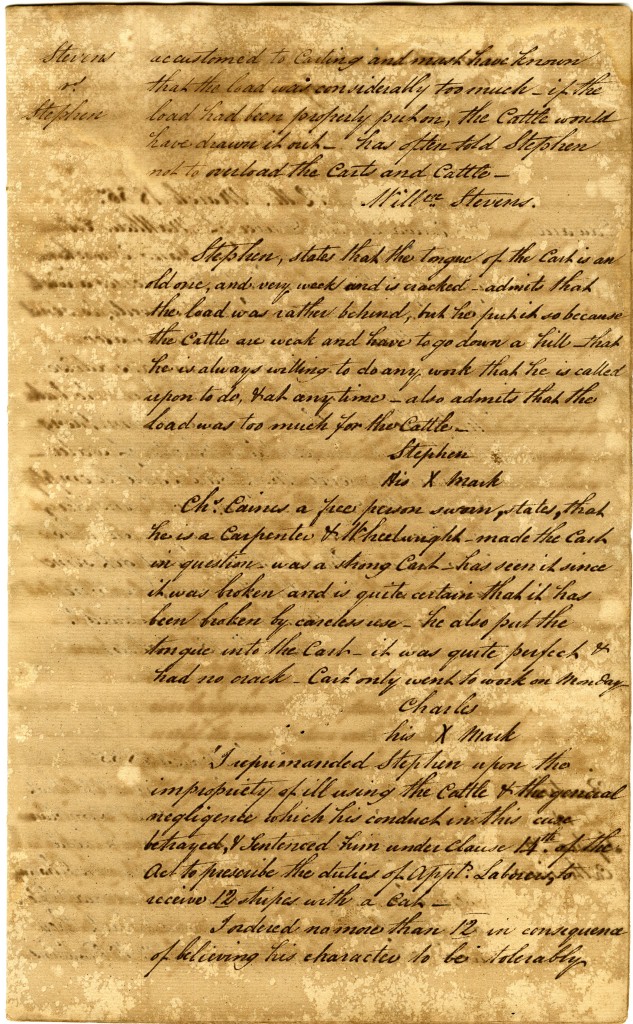 Stevens
vs
Stephen
accustomed to Carting and must have known
that the load was considerally too much – if the
load had been properly put on, the Cattle would
have drawn it out – has often told Stephen
not to overload the Carts and Cattle –
Willm Stevens.
Stephen, states that the tongue of the Cart is an
old one, and very weak and is cracked – admits that
the load was rather behind, but he put it so because
the Cattle are weak and have to go down a hill – that
he is always willing to do any work that he is called
upon to do, & at any time – also admits that the
load was too much for the Cattle –
Stephen
His X Mark
Chs. Caines a free person sworn, states, that
he is a Carpenter & Wheelwright – made the Cart
in question – was a strong Cart – has seen it since
it was broken and is quite certain that it has
been broken by careless use – he also put the
tongue into the Cart – it was quite perfect &
had no crack – Cart only went to work on Monday
Charles
his X Mark
I reprimanded Stephen upon the
impropriety of ill using the Cattle & the general
negligence which his conduct in this case
betrayed, & Sentenced him under Clause 14th. of the
Act to prescribe the duties of Appts. Laborers, to
receive 12 stripes with a Cat –
I ordered no more than 12 in consequence
of believing his character to be tolerably